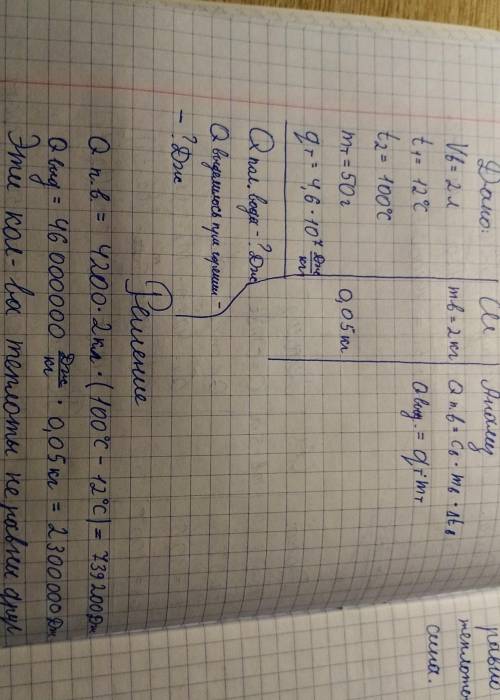 Дано:
Vв = 2 л
t₁ = 12°C
t₂ = 100°C
mт = 50г
qт = 4,6 · 10⁷ Дж/кг
Q пол. вода – ? Дж
Q выделилось при горении –
– ? Дж
Си
mв = 2 кг
0,05 кг
Анализ
Q п.в = Cв · mв · Δtв
Qвыд. = qт · mт
Решение
Q п.в. = 4200 · 2кг · (100°C – 12°C) = 739200Дж
Qвыд = 46 000000 Дж/кг · 0,05 кг = 2300000 Дж
Эти кол-ва теплоты не равны друг
равны
теплоты